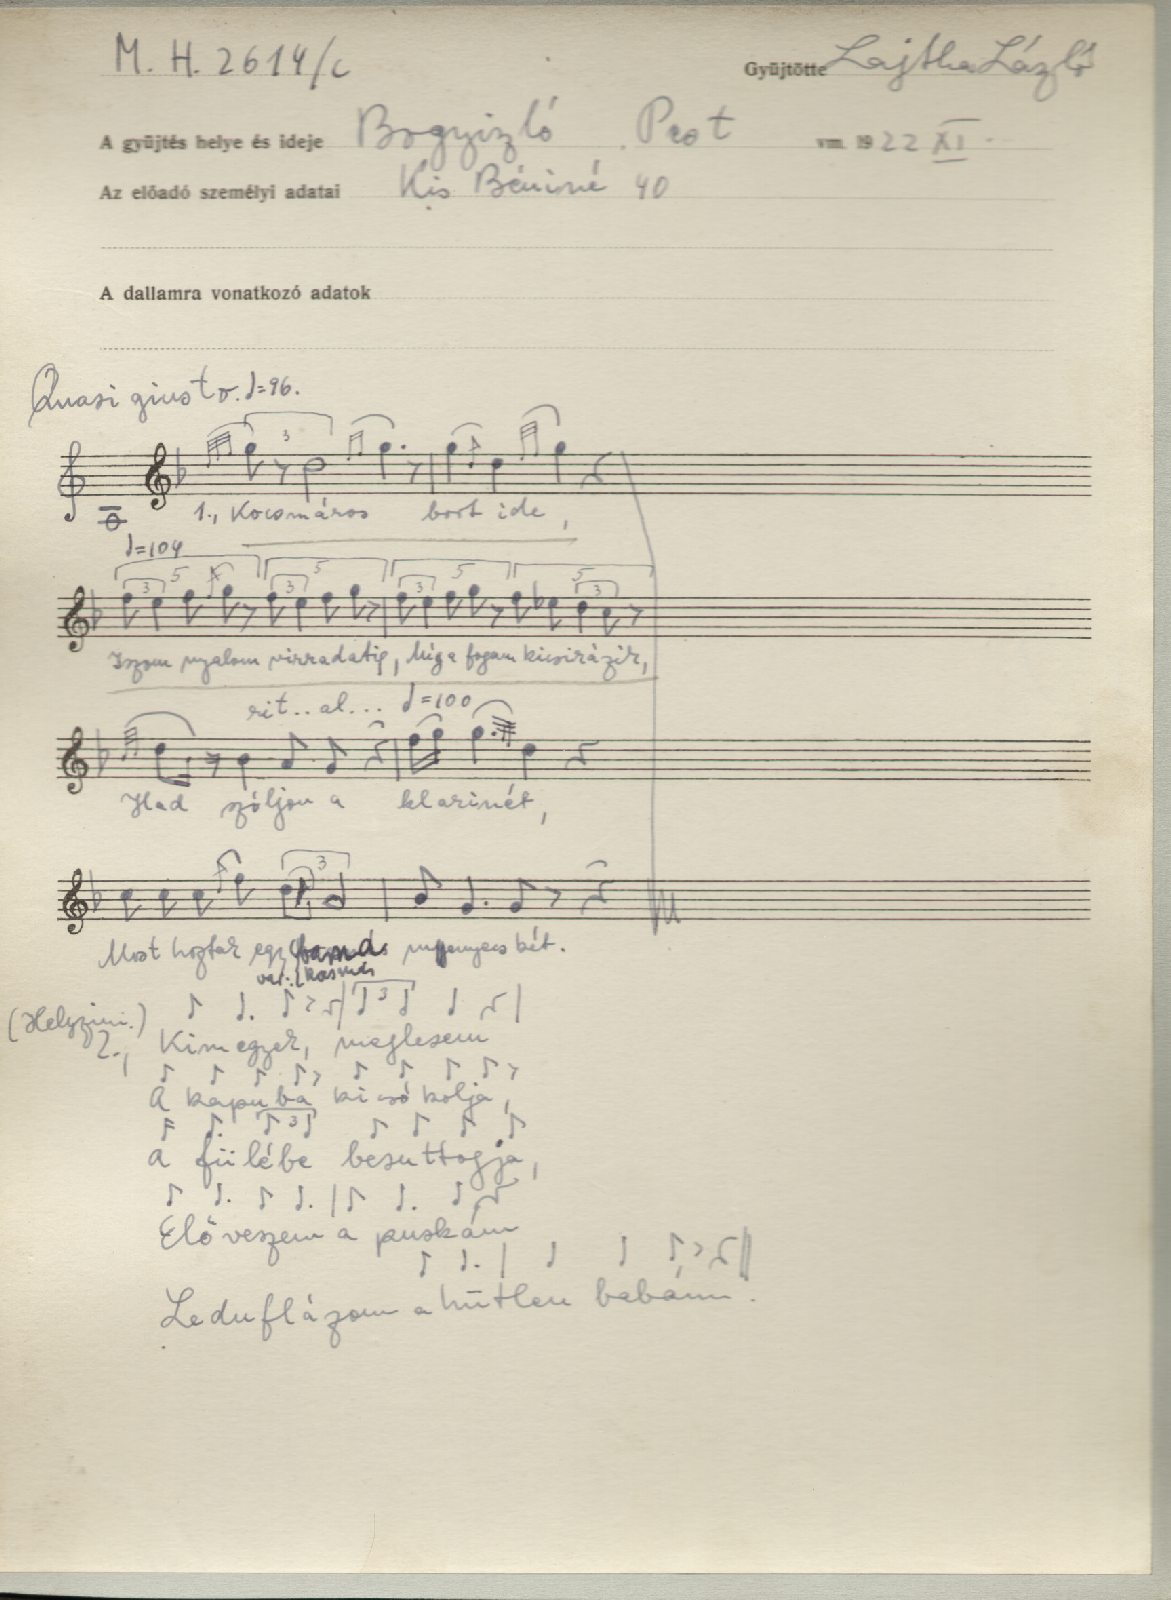 M. H. 2614/c
Gyüjtötte Lajtha László
A gyüjtés helye és ideje Bogyizló Pest vm. 1922 XI.
Az előadó személyi adatai Kis Béniné 40
A dallamra vonatkozó adatok
Quasi giusto. ♩=96.
3
1., Kocsmáros bort ide,
♩=104
3 5 3 5 3 5 5 3
Iszom nyalom virradatig, Míg a fogam kicsirázik,
rit.. al... ♩=100
Had szóljon a klarinét,
3
Most hoztak egy
var.
(Helyzini.)
3
2., Kimegyek, meglesem
A kapuba kicsókolja,
3
A fülébe besuttogja,
Elő veszem a puskám
Leduflázom a hűtlen babám.